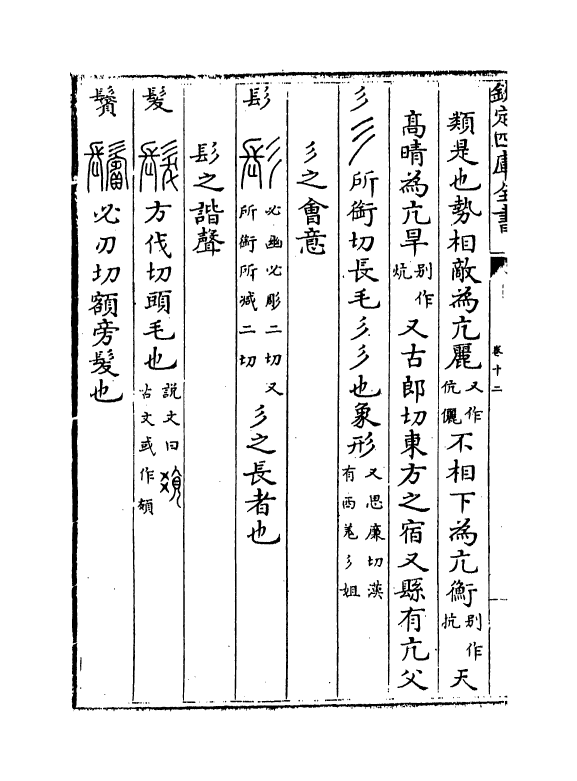 欽定四庫全書
卷十二
類是也勢相敵為亢麗又作伉儷不相下為亢衡别作抗天
高晴為亢旱别作炕又古郎切東方之宿又縣有亢父
彡所銜切長毛彡彡也象形又思廉切漢有西羗彡姐
彡之會意
髟必幽必彫二切又所銜所咸二切彡之長者也
髟之諧聲
髮方伐切頭毛也説文曰𩠙古文或作𩑶
鬢必刃切額旁髮也